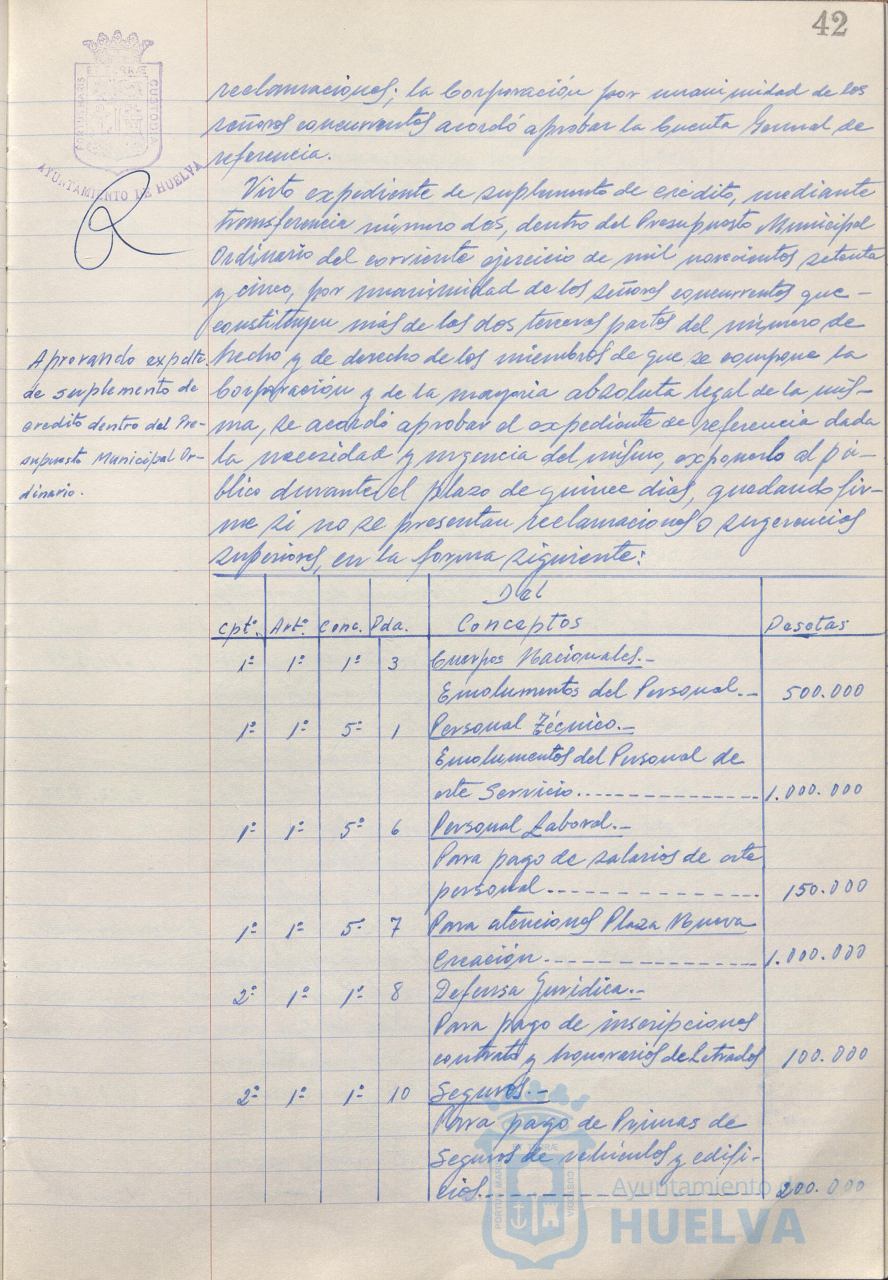 42
PORTUS MARIS ET TERRÆ CUSTODIA
AYUNTAMIENTO DE HUELVA
reclamaciones; la Corporación por unanimidad de los
señores concurrentes acordó aprobar la Cuenta General de
referencia.
Visto expediente de suplemento de crédito, mediante
transferencia número dos, dentro del Presupuesto Municipal
Ordinario del corriente ejercicio de mil novecientos setenta
y cinco, por unanimidad de los señores concurrentes que -
constituyen más de las dos terceras partes del número de
hecho y de derecho de los miembros de que se compone la
Corporación y de la mayoria absoluta legal de la mis-
ma, se acordó aprobar el expediente de referencia dada
la necesidad y urgencia del mismo, exponerlo al pú-
blico durante el plazo de quince dias, quedando fir-
me si no se presentan reclamaciones o sugerencias
superiores, en la forma siguiente:
Aprovando expdte.
de suplemento de
credito dentro del Pre-
supuesto Municipal Or-
dinario.
Del
Cptº. Artº. Conc. Pda. Conceptos Pesetas
1º 1º 1º 3 Cuerpos Nacionales.-
Emolumentos del Personal.-- 500.000
1º 1º 5º 1 Personal Técnico.-
Emolumentos del Personal de
este Servicio.------------------ 1.000.000
1º 1º 5º 6 Personal Laboral.-
Para pago de salarios de este
personal.------------------ 150.000
1º 1º 5º 7 Para atenciones Plaza Nueva
Creación.------------------ 1.000.000
2º 1º 1º 8 Defensa Juridica.-
Para pago de inscripciones
contrato y honorarios de Letrados 100.000
2º 1º 1º 10 Seguros.-
Para pago de Primas de
Seguros de vehículos y edifi-
cios.------------------ 200.000
PORTUS MARIS ET TERRÆ CUSTODIA
Ayuntamiento de
HUELVA